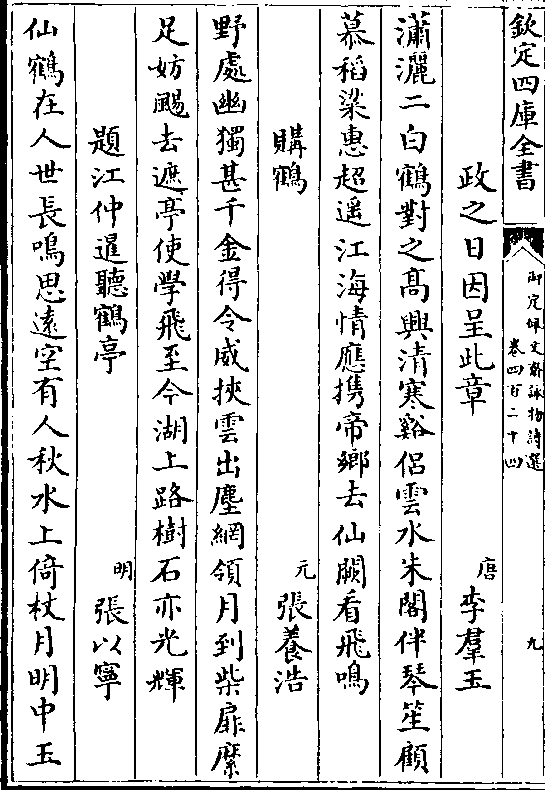 欽定四庫全書
御定佩文齋詠物詩選
卷四百二十四
九
政之日因呈此章
唐
李羣玉
瀟灑二白鶴對之高興清寒谿侶雲水朱閣伴琴笙顧
慕稻粱惠超遥江海情應携帝鄉去仙闕看飛鳴
購鶴
元
張養浩
野處幽獨甚千金得令威挾雲出塵網領月到柴扉縻
足妨颺去遮亭使學飛至今湖上路樹石亦光輝
題江仲暹聽鶴亭
明
張以寧
仙鶴在人世長鳴思遠空有人秋水上倚杖月明中玉